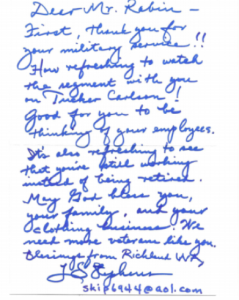 Dear Mr. Rabin —
First, thank you for
your military service!!
How refreshing to watch
the segment with you
on Tucker Carlson!
Good for you to be
thinking of your employees.
It's also refreshing to see
that you're still working
instead of being retired.
May God bless you,
your family, and your
clothing business! We
need more veterans like you.
Blessings from Richland WA,
Stephens
skip6944@aol.com